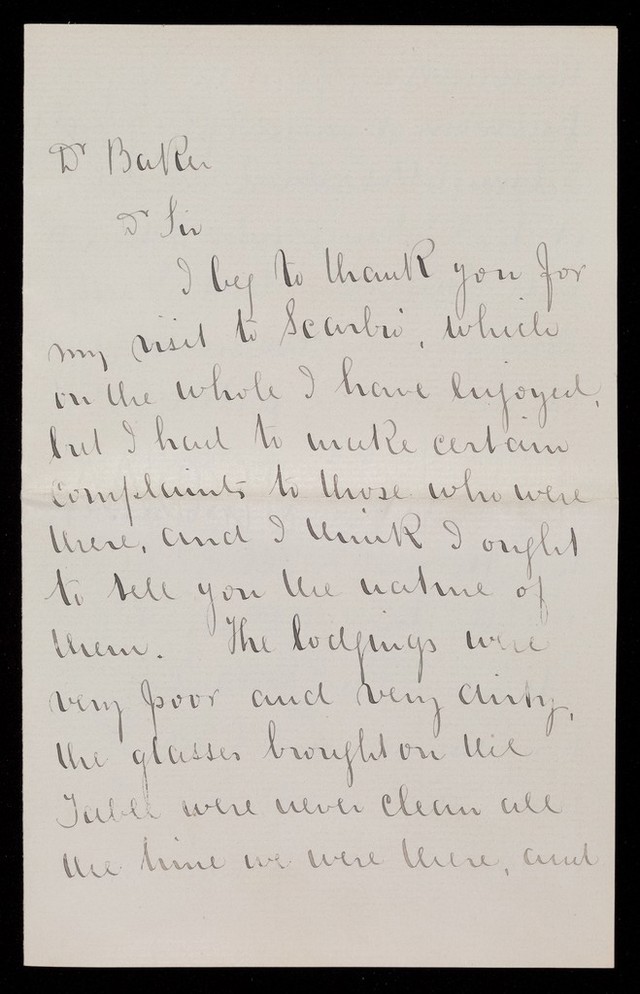 Dr Baker
Dr Sir
I beg to thank you for
my visit to Scarbro', which
on the whole I have enjoyed,
but I had to make certain
complaints to those who were
there, and I think I ought
to tell you the nature of
them. The lodgings were
very poor and very dirty,
the glasses brought on the
Table were never clean all
the time we were there, and